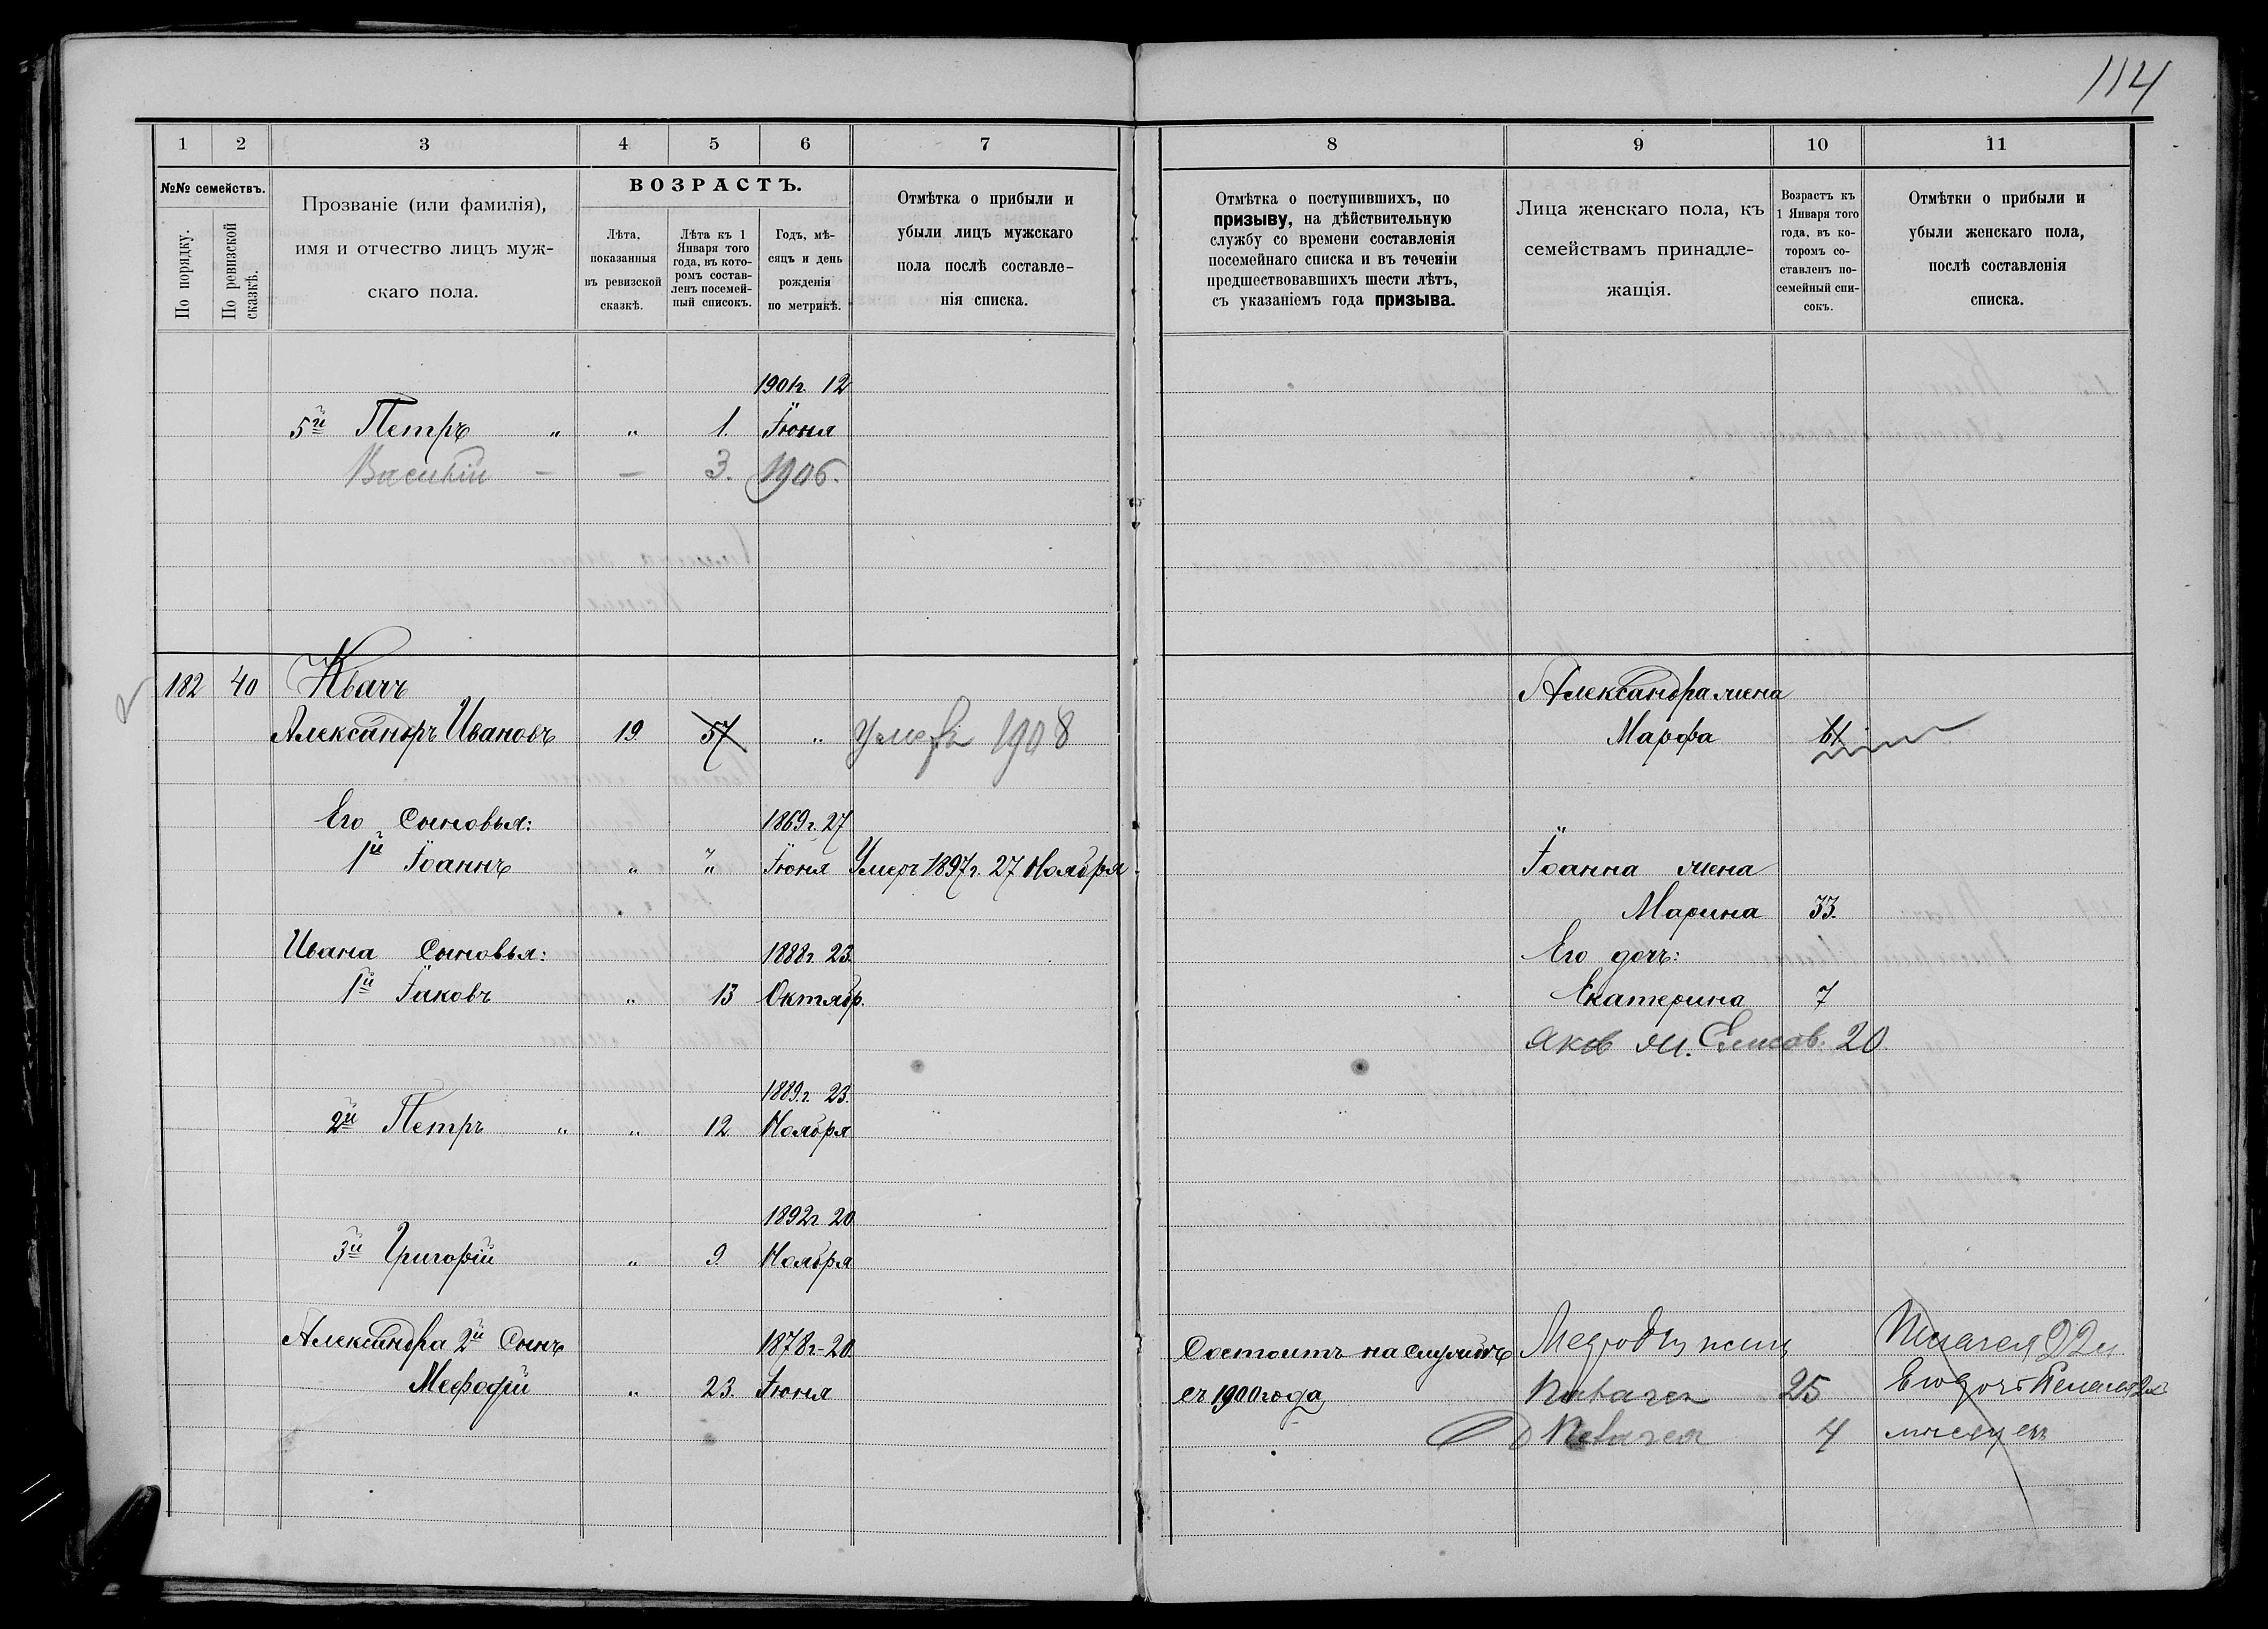 114
1 2 3 4 5 6 7 8 9 10 11
№№ семействъ.
По порядку.
По ревизской сказкѣ.
Прозваніе (или фамилія),
имя и отчество лицъ муж-
скаго пола.
ВОЗРАСТЪ.
Лѣта,
показанныя
въ ревизской
сказкѣ.
Лѣта къ 1
Января того
года, въ кото-
ромъ состав-
ленъ посемей-
ный списокъ.
Годъ, мѣ-
сяцъ и день
рожденія
по метрикѣ.
Отмѣтка о прибыли и
убыли лицъ мужскаго
пола послѣ составле-
нія списка.
Отмѣтка о поступившихъ, по
призыву, на дѣйствительную
службу со времени составленія
посемейнаго списка и въ теченіи
предшествовавшихъ шести лѣтъ,
съ указаніемъ года призыва.
Лица женскаго пола, къ
семействамъ принадле-
жащія.
Возрастъ къ
1 Января того
года, въ ко-
торомъ со-
ставленъ по-
семейный спи-
сокъ.
Отмѣтки о прибыли и
убыли женскаго пола,
послѣ составленія
списка.
1901г. 12
5й Петръ " " 1. Іюня
Василій - - 3. 1906.
182 40 Квачъ Александра жена
Александръ Ивановъ 19 57 " Умеръ 1908 Марфа 61
Его Сыновья: 1869г. 27
1й Іоаннъ " " Іюня Умеръ 1897г. 27 Ноября Іоанна жена
Марина 33.
Ивана Сыновья: 1888г. 23. Его дочь:
1й Іаковъ " 13 Октябр. Екатерина 7
Яков ж. Елисав. 20
1889г. 23.
2й Петръ " " 12 Ноября
1892г. 20
3й Григорій " 9. Ноября
Александра 2й Сынъ 1878г. 20. Состоитъ на службѣ
Меѳодій " 23. Іюня съ 1900 года 25
4